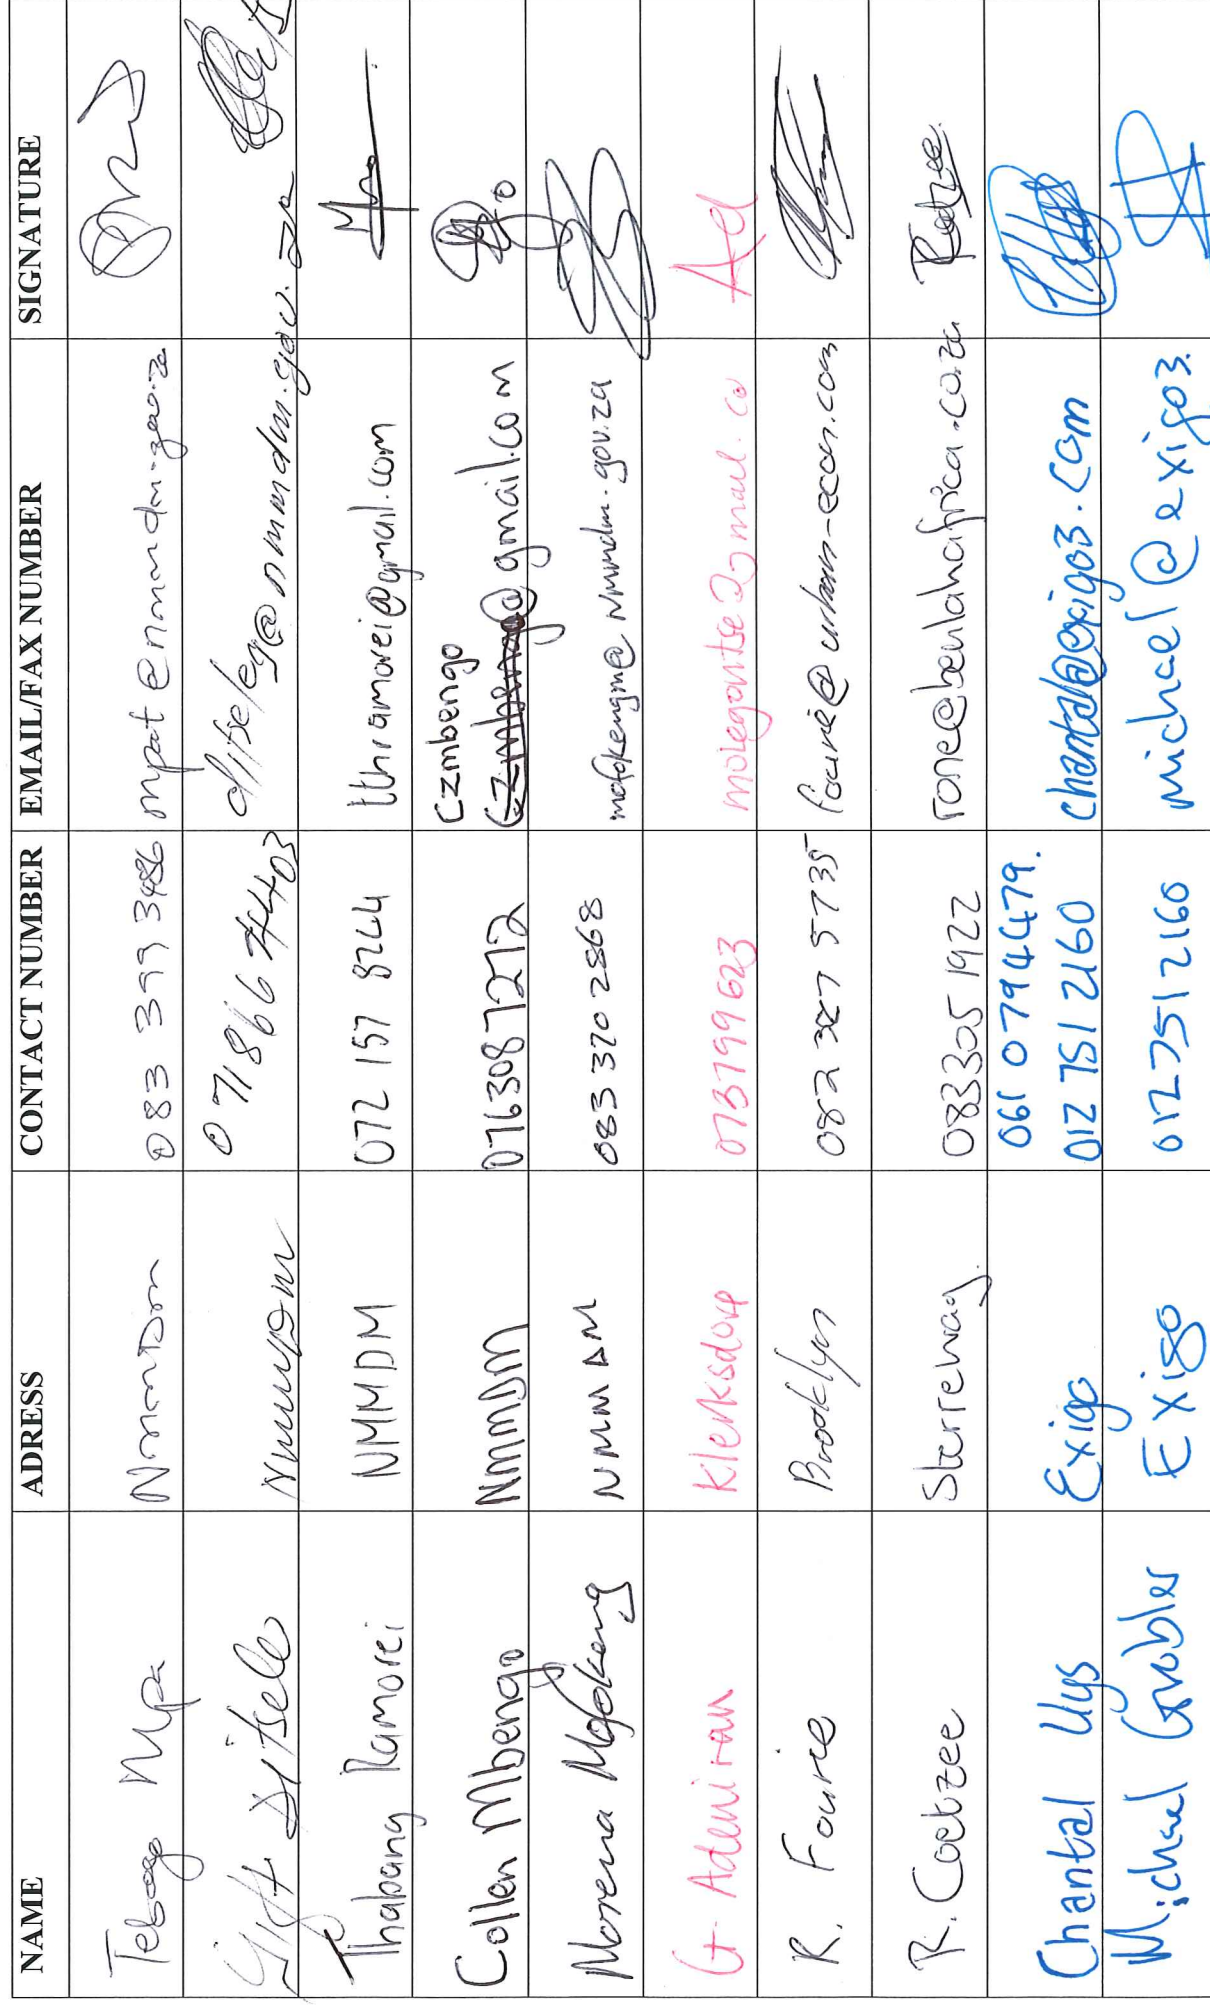 NAME ADRESS CONTACT NUMBER EMAIL/FAX NUMBER SIGNATURE
Tebogo Mpa NMMDM 083 399 3486
Gift Ditsele NMMDM 071866 4403 ditseleg@nmmdm.gov.za
Thabang Ramorei NMMDM 072 157 8244 tthramorei@gmail.com
Czmbengo
Collen Mbengo NMMDM 0763087272 @gmail.com
Morena Mofokeng NMMDM 083 370 2868 mofokengm@nmmdm.gov.za
G Adeniran Klerksdorp 073799623 molegontse2@mail.co Ad
R. Fourie Brooklyn 082 327 5735 fourie@urban-econ.com
R. Coetzee Sterrewag. 0833051922 rone@beulahafrica.co.za
061 0794479.
Chantal Uys Exigo 012 751 2160 chantal@exigo3.com
Michael Grobler Exigo 012 751 2160 michael@exigo3.